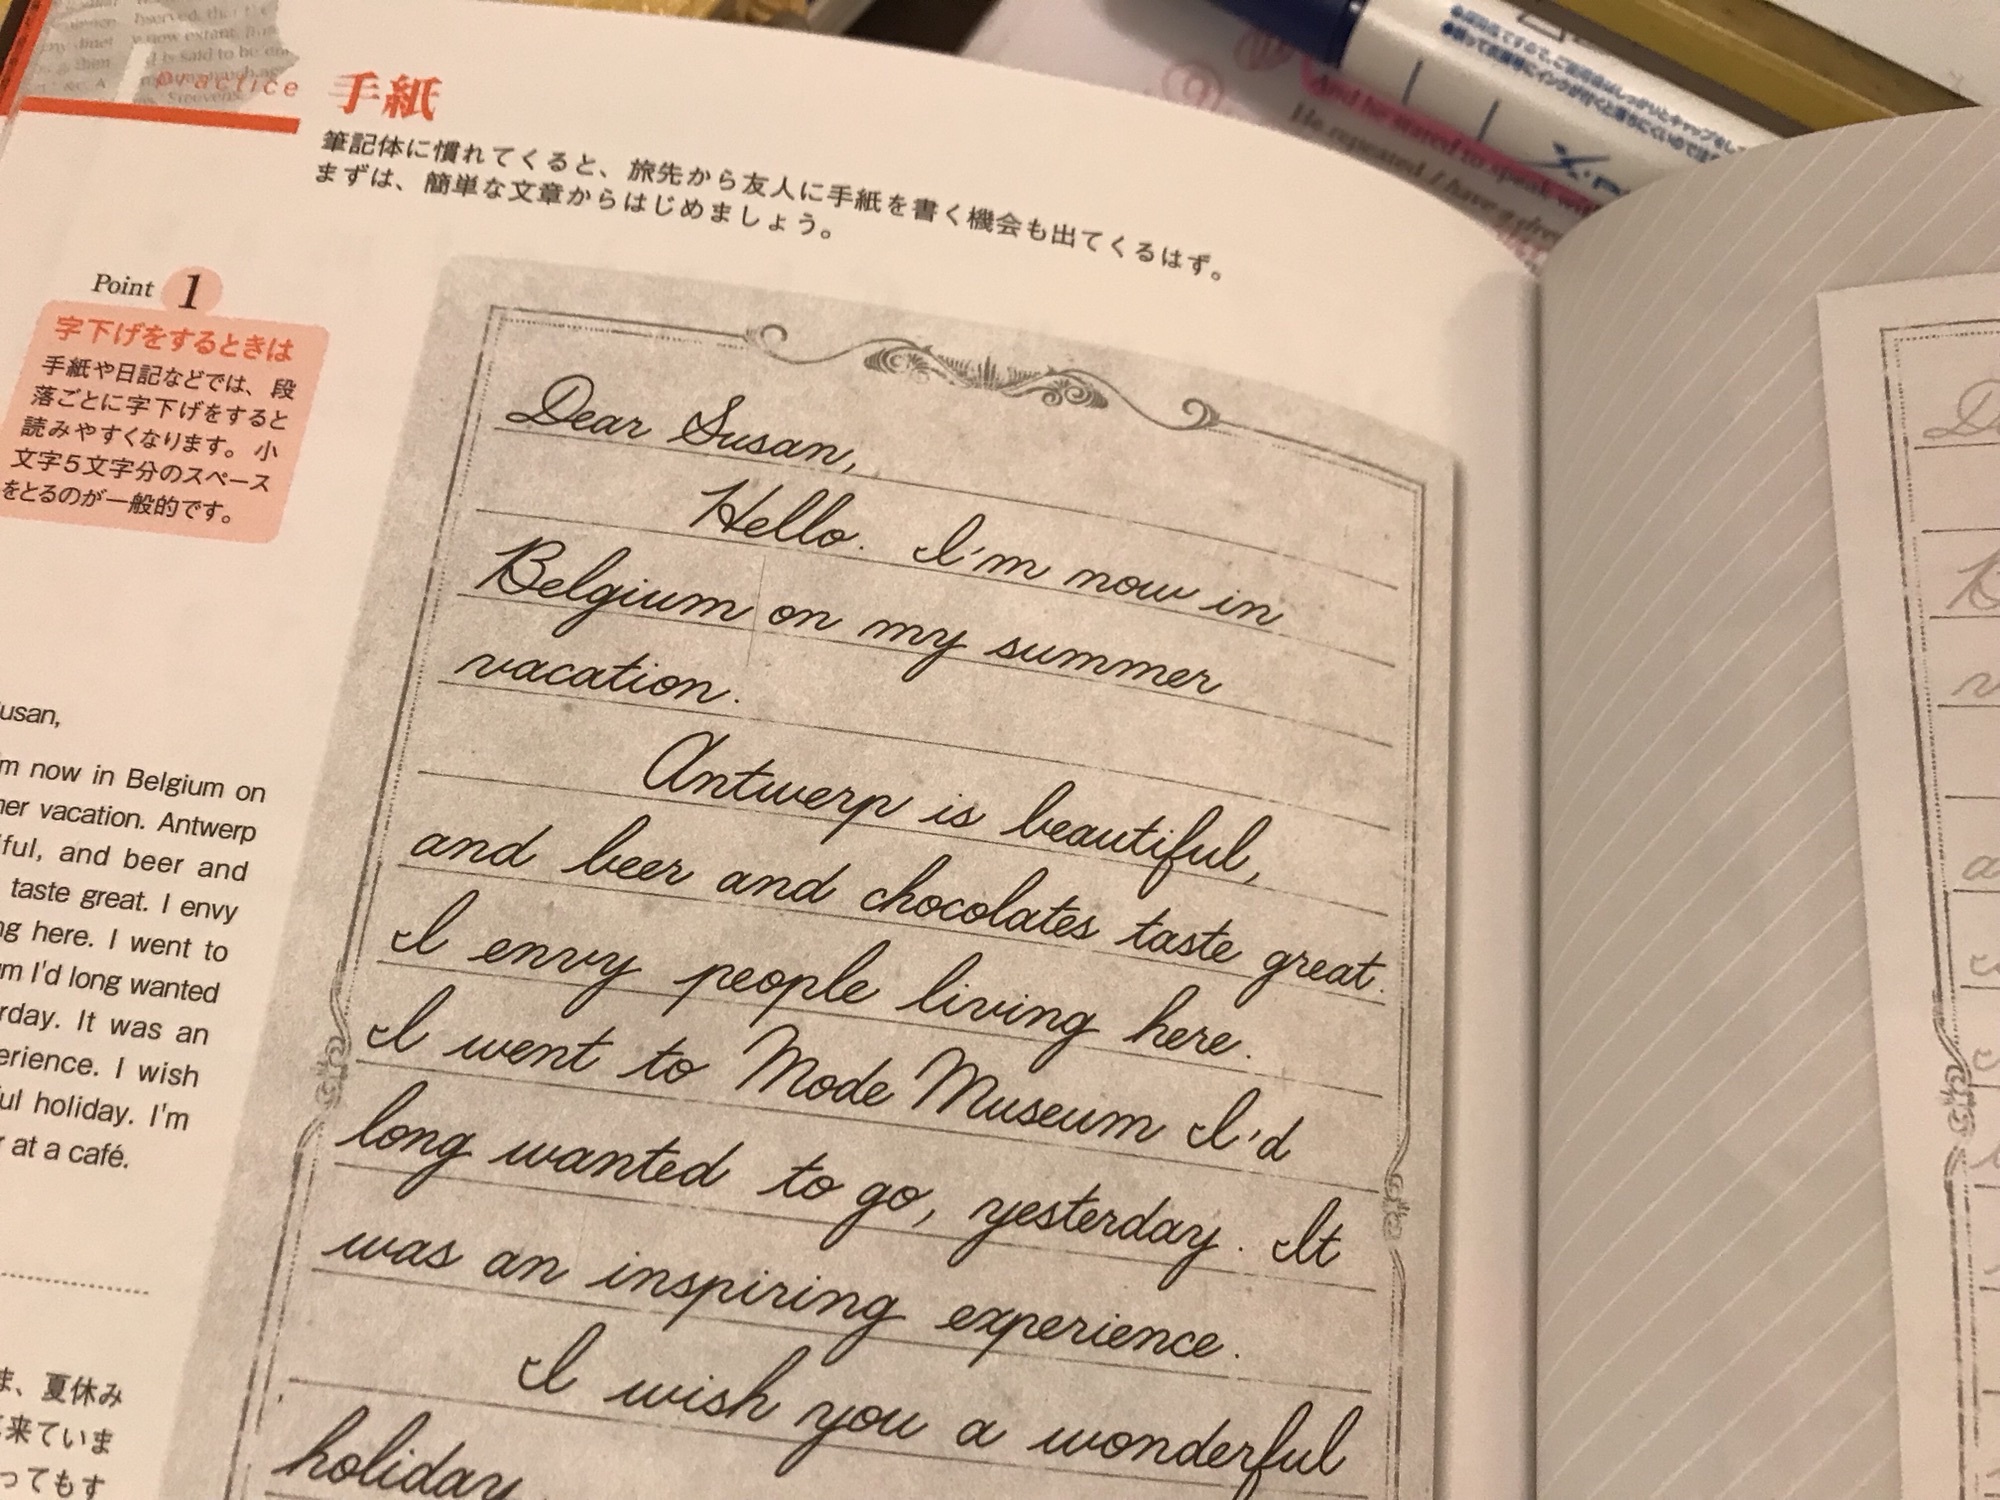 Practice 手紙
筆記体に慣れてくると、旅先から友人に手紙を書く機会も出てくるはず。
まずは、簡単な文章からはじめましょう。
Point 1
字下げをするときは
手紙や日記などでは、段
落ごとに字下げをすると
読みやすくなります。小
文字5文字分のスペース
をとるのが一般的です。
Dear Susan,
Hello. I'm now in
Belgium on my summer
vacation.
Antwerp is beautiful,
and beer and chocolates taste great.
I envy people living here.
I went to Mode Museum I'd
long wanted to go, yesterday. It
was an inspiring experience.
I wish you a wonderful
holiday.
now in Belgium on
vacation. Antwerp
and beer and
taste great. I envy
here. I went to
I'd long wanted
It was an
I wish
holiday. I'm
at a café.
夏休み
来ていま
ってもす
And he started to speak
He repeated I have a